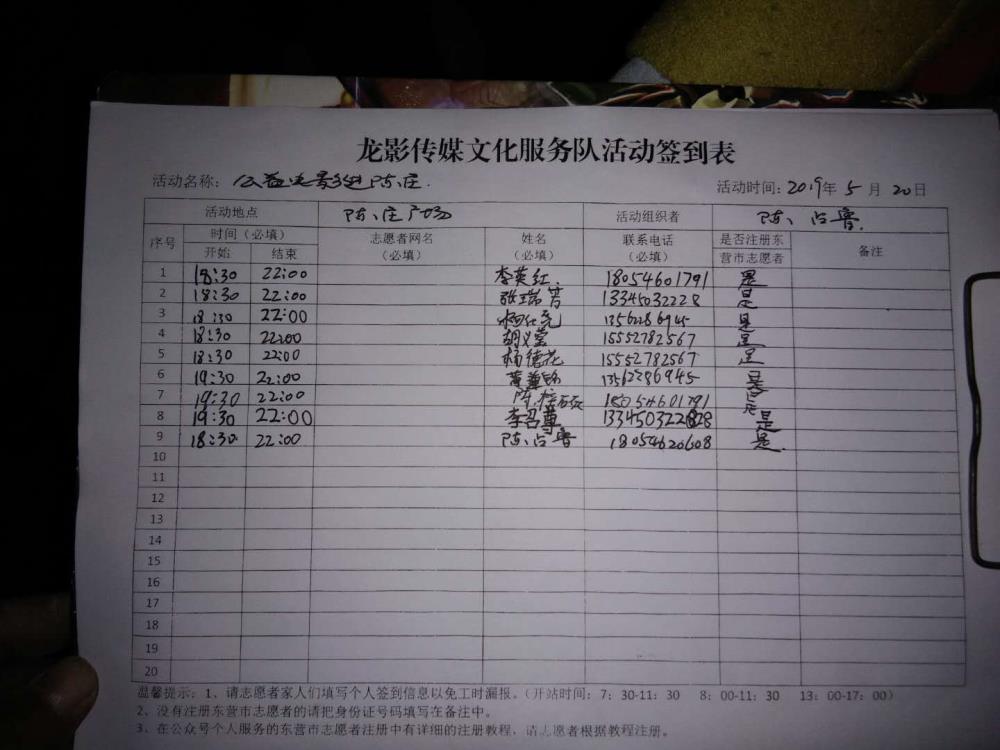 龙影传媒文化服务队活动签到表
活动名称：公益电影进陈庄. 活动时间：2019年 5 月 20日
活动地点 陈庄广场 活动组织者 陈占鲁
序号 时间（必填） 志愿者网名（必填） 姓名（必填） 联系电话（必填） 是否注册东营市志愿者 备注
开始 结束
1 18:30 22:00 李英红 18054601791 是
2 18:30 22:00 张瑞芳 13345032228 是
3 18:30 22:00 13562286945 是
4 18:30 22:00 胡义莹 15552782567 是
5 18:30 22:00 杨德花 15552782567 是
6 19:30 22:00 13562286945 是
7 19:30 22:00 陈 18054601791 是
8 19:30 22:00 李召尊 是
9 18:30 22:00 陈占鲁 18054620608 是.
10
11
12
13
14
15
16
17
18
19
20
温馨提示：1、请志愿者家人们填写个人签到信息以免工时漏报。（开站时间：7：30-11：30 8：00-11：30 13：00-17：00）
2、没有注册东营市志愿者的请把身份证号码填写在备注中。
3、在公众号个人服务的东营市志愿者注册中有详细的注册教程，请志愿者根据教程注册。